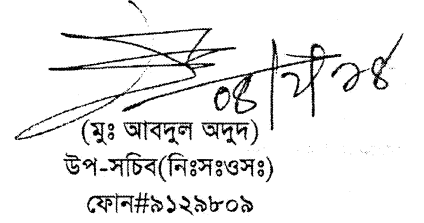 (মুঃ আবদুল অদুদ)
উপ-সচিব(নিঃসঃওসঃ)
ফোন#৯১২৯৮০৯